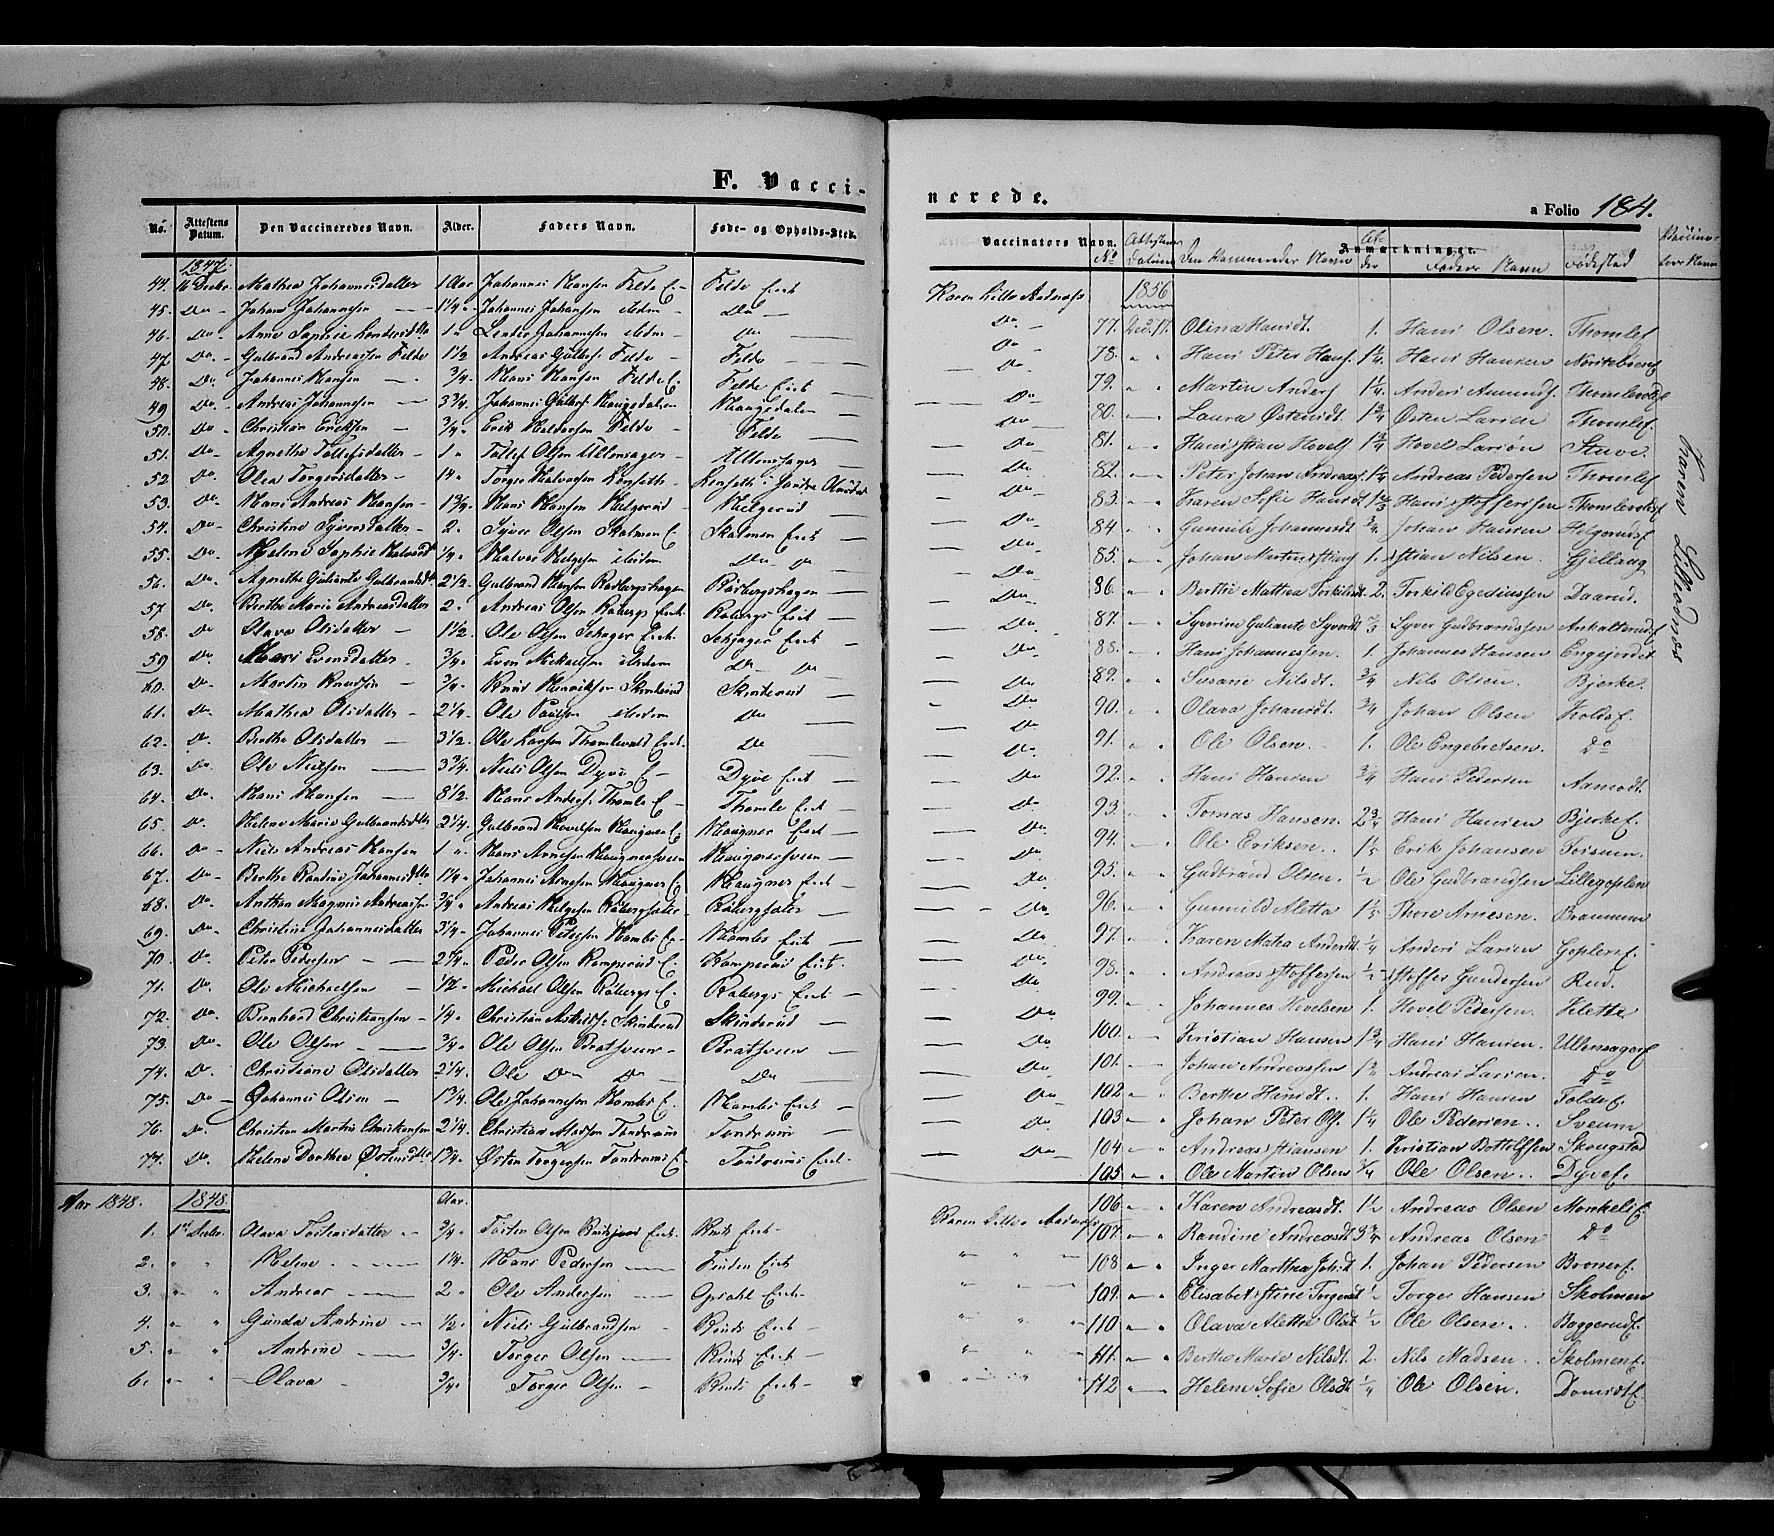 F. Vacci-
No. Attestens Datum. Den Vaccineredes Navn. Alder. Faders Navn. Føde- og Opholds-Sted.
1847
44. 16 Decbr. Mathea Johannesdatter 1 Aar Johannes Hansen Felde E. Felde Eiet
45. Do Johans Johannesen 1 1/4 Johannes Johansen ibidem Do
46. Do Anne Sophie 1 Johannesen ibidem Do
47. Do Gulbrand Andreassen Felde 1 1/2 Andreas Gulbs. Felde Felde
48. Do Johannes Hansen 3/4 Hans Hansen Felde E. Felde Eiet
49. Do Andreas Johannesen 3 3/4 Johannes Gulbs. Haugsdalen Haugsdalen
50. Do Christian Eriksen 3/4 Erik Halvorsen Felde Felde
51. Do Agnethe Tollefsdatter 1 Tollef Olsen Ullensager Ullensager
52. Do Olea Torgersdatter 1 1/4 Torger Halvorsen
53. Do Hans Andreas Hansen 1 3/4 Hans Hansen Helgerud Helgerud
54. Do Christine Syversdatter 2 Syver Olsen Skolmen E. Skolmen Eiet
55. Do Helene Sophie 1/4 Halvor Helgesen ibidem Do Do
56. Do Agnethe Guliante Gulbrandsdtr 2 1/2 Gulbrand Hansen Robergshagen Robergshagen
57. Do Berthe Marie Andreasdatter 2 Andreas Olsen Robergs Eiet Robergs Eiet
58. Do Olava Olsdatter 1 1/2 Ole Olsen Eiet Eiet
59. Do Mari Evensdatter 3/4 Even Mickaelsen ibidem Do Do
60. Do Martin Knudsen 3/4 Knud Henriksen Skinderud Skinderud
61. Do Mathea Olsdatter 2 1/4 Ole Paulsen ibidem Do
62. Do Berthe Olsdatter 3 1/2 Ole Larsen Thomlevold Eiet Do
63. Do Ole Nielsen 3 3/4 Niels Olsen Dyve E. Dyve Eiet
64. Do Hans Hansen 8 1/2 Hans Anders. Thomle E. Thomle Eiet
65. Do Helene Marie Gulbrandsdtr 2 1/4 Gulbrand Hovelsen Haugner E. Haugner Eiet
66. Do Niels Andreas Hansen 1 Hans Arnesen Haugnersveen Haugnersveen
67. Do Berthe Pauline Johannesdtr 1 1/4 Johannes Arnesen Haugner E. Haugner Eiet
68. Do Anthon Magnus Andreasen 3/4 Andreas Helgesen Robergsæter Robergsæter
69. Do Christine Johannesdatter 3 1/4 Johannes Petersen Hambs E. Hambs Eiet
70. Do Peter Pedersen 2 1/4 Peder Olsen Komperud E. Komperud Eiet
71. Do Ole Michaelsen 1/2 Michael Olsen Robergs E. Robergs Eiet
72. Do Bernhard Christiansen 1/4 Christian Skinderud Skinderud
73. Do Ole Olsen 3/4 Ole Olsen Bratsveen Bratsveen
74. Do Christiane Olsdatter 2 1/4 Ole Do Do Do
75. Do Johannes Olsen 1 3/4 Ole Johannesen Hambs E. Hambs Eiet
76. Do Christian Martin Christiansen 2 1/4 Christian Madsen Tandrum Tandrum
77. Do Helene Dorthea Østensdtr 1 3/4 Østen Torgersen Tandrums E. Tandrums Eiet
Aar 1848. 1848. Aar.
1. 1ste Decbr. Olava Tostensdatter 3/4 Tosten Olsen Eiet Rinds Eiet
2. " " Helene 1 1/4 Hans Pedersen Finden Eiet
3. " " Andreas 2 Ole Andersen Opsahl Eiet
4. " " Gunda Andrine 1/2 Niels Gulbrandsen Rinds Eiet
5. " " Andrine 3/4 Torger Olsen Rinds Eiet
6. " " Olava 3/4 Torger Olsen Rinds Eiet
nerede.
a Folio 184.
Vaccinators Navn. Anmærkninger.
No Attestens Datum Den Navn Alder Faders Navn Fødested Vaccinators Navn
Karen Lilleo Aadnæs 1856
Do 77. Dec. 17. Olina Hansdt. 1. Hans Olsen Thomlef
Do 78. " " Hans Peter Hans. 1 1/4 Hans Hansen
Do 79. " " Martin Anders. 1 1/4 Anders Amunds. Thomlevold
Do 80. Laura Østensdt 1 3/4 Østen Larsen Thomlef
Do 81. " " Hans Stian Hovels. 1 3/4 Hovel Larsøn Stuve
Do 82. " " Peter Johan Andreas. 1 1/4 Andreas Pedersen Thomlef
Do 83. " " Karen Sofie Hansdt 1 2/3 Hans Stoffersen Thomlevold
Do 84 " " Gunnild Johannesdt 3/4 Johan Hansen Helgerudf
Do 85. " " Johan Martin 1. Stian Nilsen Gjellaug
Do 86. " " Berthe Mathea Torkildt. 2. Torkild Egediussen Daarud.
Do 87. " " Syverine Guliante Syversdt 2/3 Syver Gudbrandssen
Do 88. " " Hans Johannessen. 1. Johannes Hansen Engejordet
Do 89. Susane Nilsdt. 3/4 Nils Olsen. Bjerke.
Do 90. " " Olava Johansdt. 3/4 Johan Olsen Koldsf.
Do 91. " " Ole Olsen 1. Ole Engebretsen. Do
Do 92. " " Hans Hansen 3/4 Hans Pedersen Aamodt.
Do 93. " " Tomas Hansen. 2 3/4 Hans Hansen Bjerkef.
Do 94. Ole Eriksen. 1 1/5 Erik Johansen
Do 95. " " Gudbrand Olsen. 1/2 Ole Gudbrandsen Lillegoplen
Do 96. " " Gunnild Aletta 1 1/5 Thore Arnesen. Braamum
Do 97. Karen Matea Andersdt 1/4 Anders Larsen Goplenf.
Do 98. " " Andreas Stoffersen 1/2 Stoffer Gundersen Rud.
Do 99. Johannes Hovelsen 1. Hovel Pedersen. Klette
Do 100. " " Kristian Hansen 1 3/4 Hans Hansen. Ullensagerf
Do 101. " " Johan Andreassen 1 3/4 Andreas Larsen Do
Do 102 " " Berthe Hansdt. 1. Hans Hansen Foldef.
Do 103 " " Johan Peter Ols. 1 1/4 Ole Pedersen. Sveum
Do 104 " " Andreas Stiansen 1. Kristian Bottolfsen Skougstad
105 Ole Martin Olsen 3/4 Ole Olsen. Dyvef.
106 " " Karen Andreasdt. 1 1/2 Andreas Olsen Monkelif
Karen Lilleo Aadnæs 107 " " Randine Andreasdt 3 3/4 Andreas Olsen Do
" " " 108 " " Inger Marthea Johsdt 1. Johan Pedersen
" " 109. " " Elisabet Stine Torgersdt 1/2 Torger Hansen Skolmen
" " " 110 " " Olava Alette Olsdt 1/2 Ole Olsen. Baggerudf.
" " " 111. " " Berthe Marie Nilsdt. 2. Nils Madsen Skolmenf.
" " " 112 Helene Sofie Olsdt 1/4 Ole Olsen.
Karen Lilleodnæs